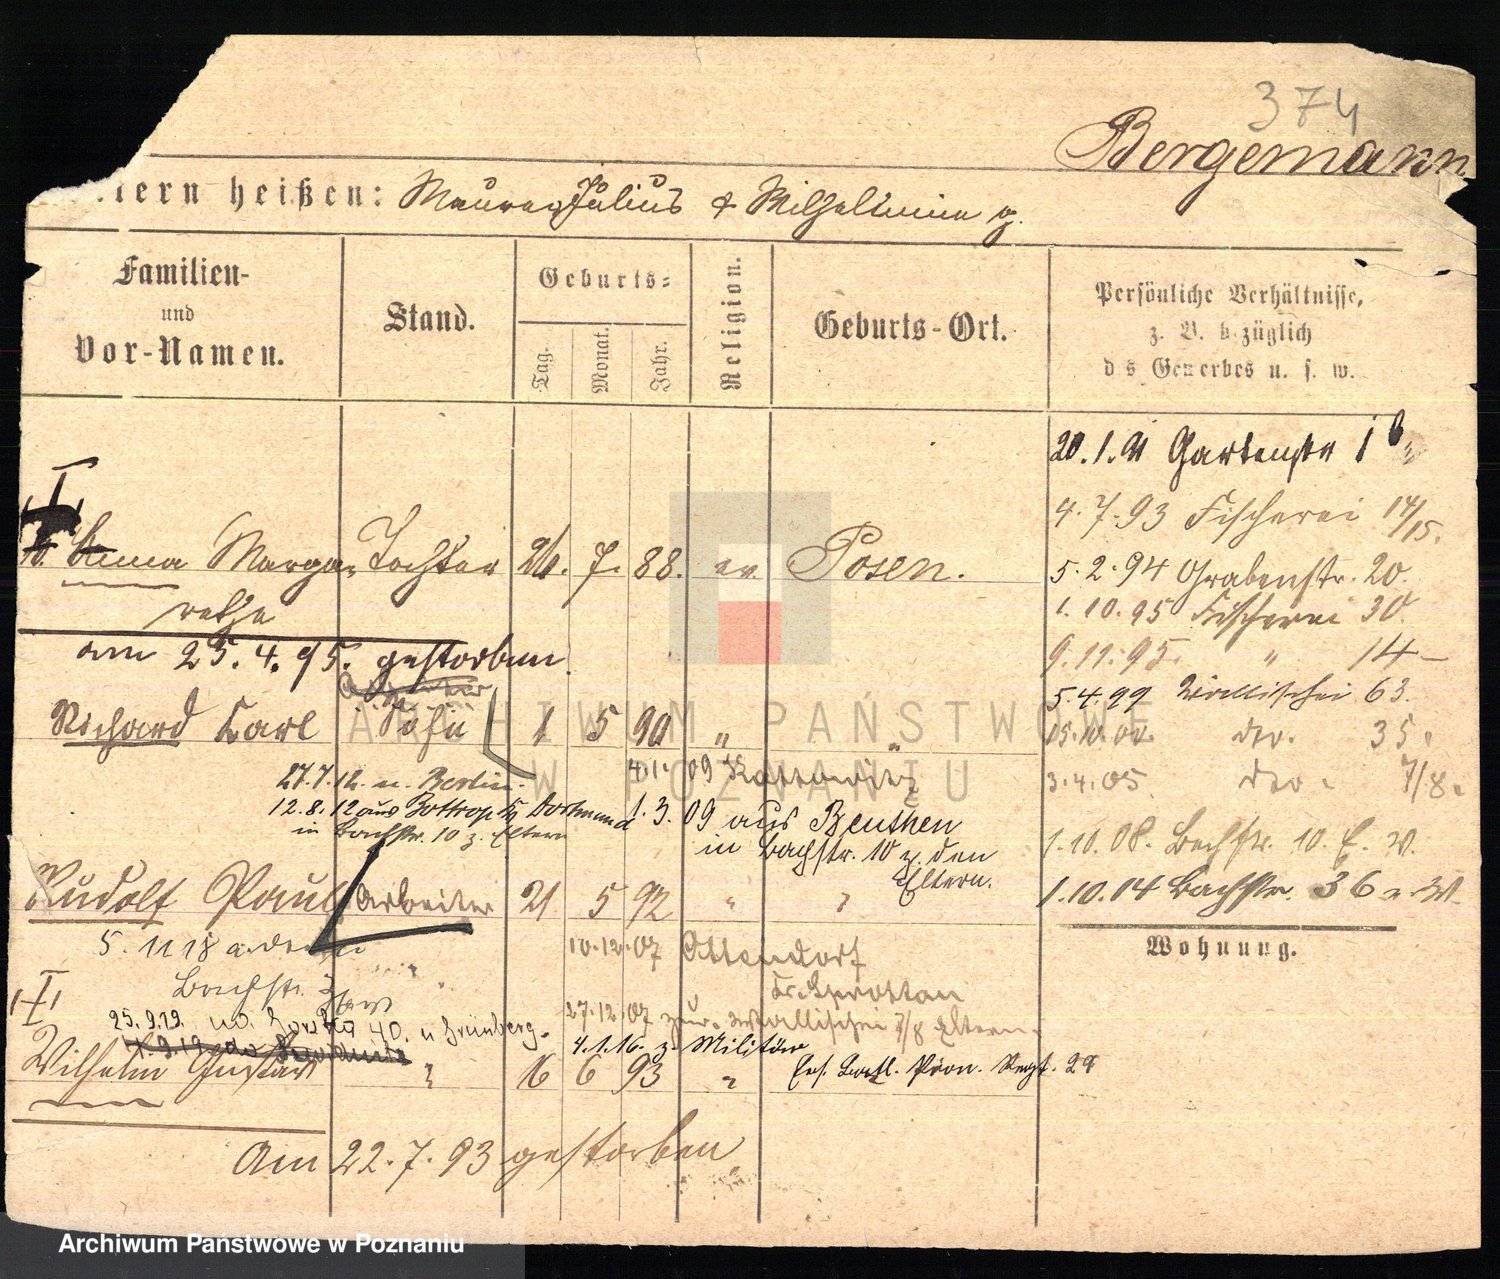 374
Bergemann
tern heißen: Maurer Julius & Wilhelmine g.
Familien- und Vor-Namen.
Stand.
Geburts=
Tag.
Monat.
Jahr.
Religion.
Geburts-Ort.
Persönliche Verhältnisse,
z. B. b züglich
d s Gewerbes u. s. w.
20.1.91 Gartenstr 16
4.7.93 Fischerei 14/15.
Anna Marga- Tochter 26. 7. 88. ev. Posen.
retha
5.2.94 Grabenstr. 20.
1.10.95 Fischerei 30.
am 25.4.95. gestorben.
9.11.95. " 14 –
5.4.99 Wallischei 63.
Richard Carl Sohn 1 5 90 " "
15.10.00. do. 35.
27.7.12. n. Berlin.
4.1. 09 Kattowitz
3.4.05. do. 7/8.
12.8.12 aus Bottrop Dortmund
1.3.09 aus Beuthen
in Bachstr. 10 z. Eltern
in Bachstr. 10 z. den
Eltern.
1.10.08. Bachstr. 10. E. W.
Rudolf Paul Arbeiter 21 5 92 " "
1.10.14 Bachstr. 36 W.
Wohnung.
5.11 18
10.12.07 Ottendorf
Bachstr.
Kr. Sprottau
27.12.07 zur. Wallischei 7/8 Eltern.
25.9.19. 40. n Grünberg.
4.1.16. z. Militär
Ers. Batl. Pion. Regt. 29
Wilhelm Gustav " 16 6 93 "
Am 22.7.93 gestorben
ARCHIWUM PAŃSTWOWE
W POZNANIU
Archiwum Państwowe w Poznaniu